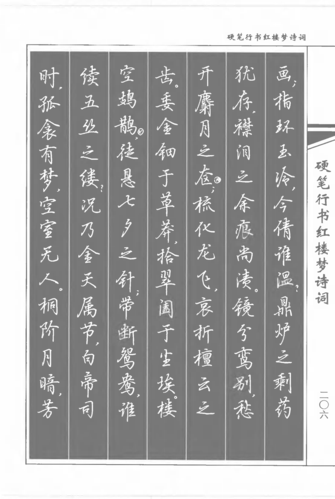 硬笔行书红楼梦诗词
画；指环玉冷，今倩谁温？鼎炉之剩药
犹存，襟泪之余痕尚渍。镜分鸾别，愁
开麝月之奁；梳化龙飞，哀折檀云之
齿。委金钿于草莽，拾翠盒于尘埃。楼
空鳷鹊，徒悬七夕之针；带断鸳鸯，谁
续五丝之缕？况乃金天属节，白帝司
时，孤衾有梦，空室无人。桐阶月暗，芳
硬笔行书红楼梦诗词
二〇六